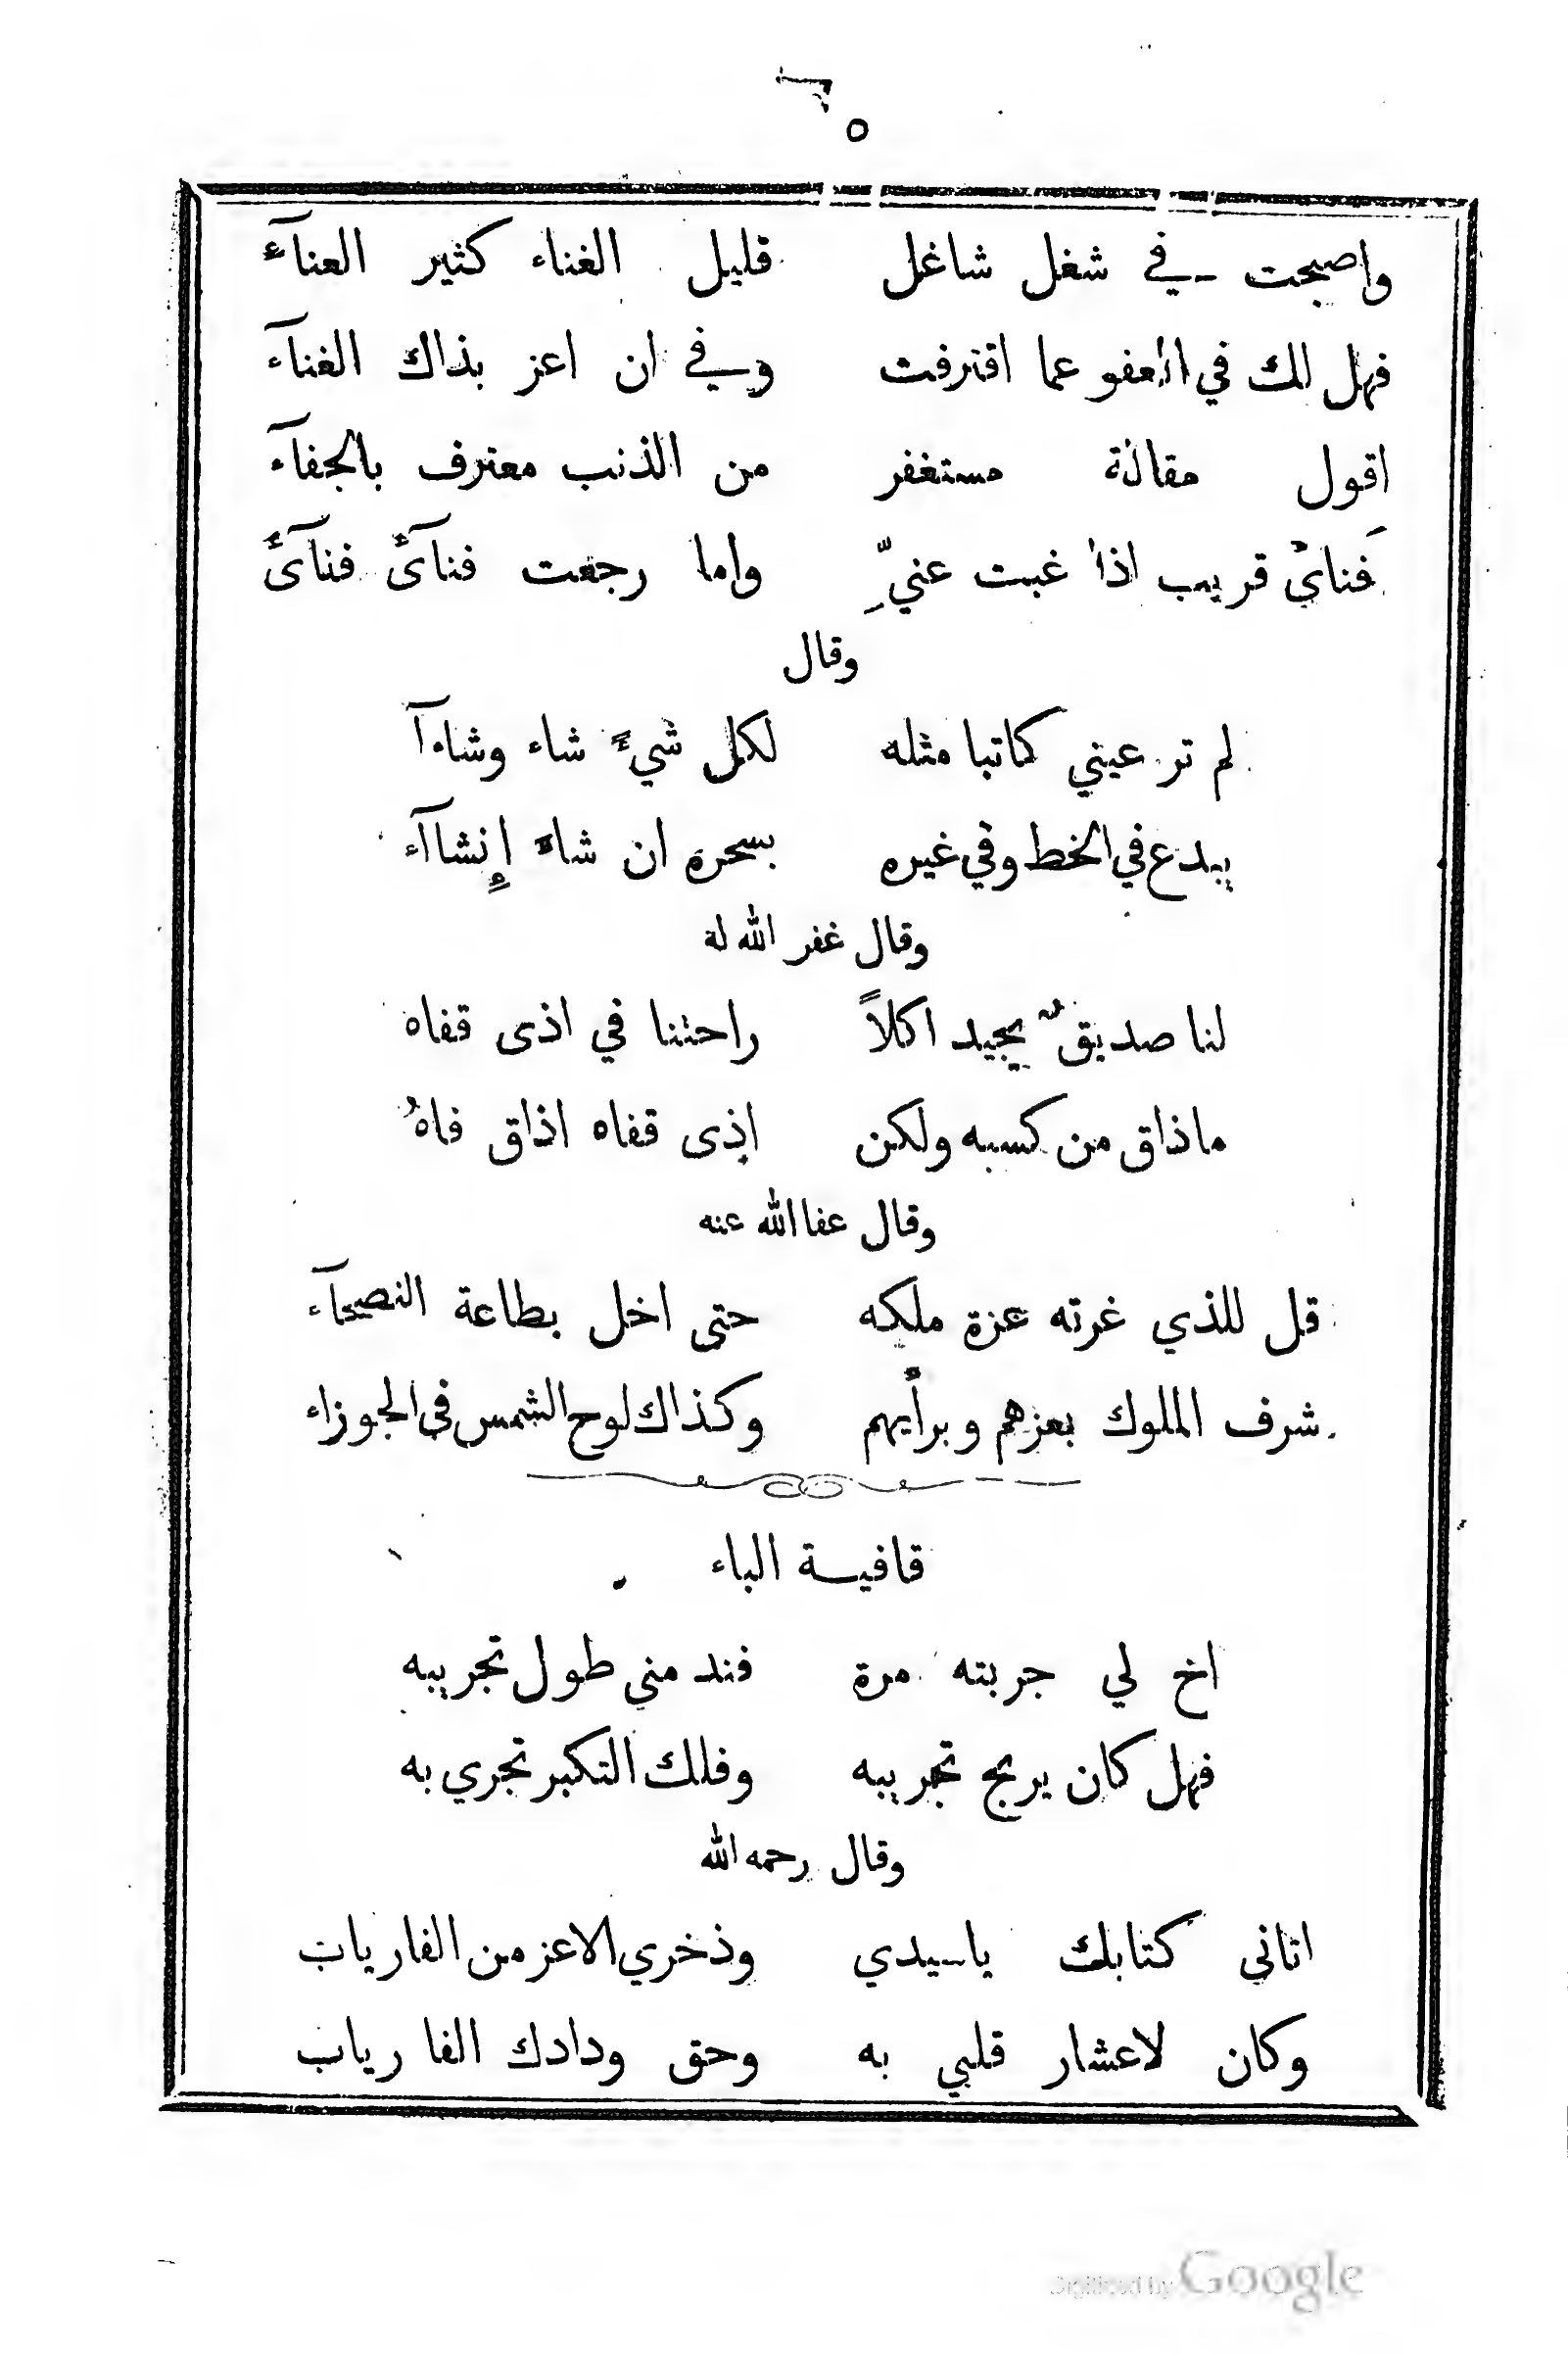 ٥
واصبحت في شغل شاغل قليل الغناء كثير العنآء
فهل لك في العفو عما اقترفت وفي ان اعز بذاك الغنآء
اقول مقالة مستغفر من الذنب معترف بالجفآء
فنائ قريب اذا غبت عنيّ واما رجعت فنآئ فنآئ
وقال
لم تر عيني كاتبا مثله لكل شيءٍ شاء وشاءآ
يبدع في الخط وفي غيره بسحره ان شاء إِنشاآء
وقال غفر الله له
لنا صديقٌ يجيد اكلاً راحتنا في اذى قفاه
ماذاق من كسبه ولكن اذى قفاه اذاق فاهُ
وقال عفا الله عنه
قل للذي غرته عزة ملكه حتى اخل بطاعة النصحآء
شرف الملوك بعزهم وبرأيهم وكذاك لوح الشمس في الجوزاء
قافية الباء
اخ لي جربته مرة فند مني طول تجريبه
فهل كان يربح تجريبه وفلك التكبر تجري به
وقال رحمه الله
اتاني كتابك ياسيدي وذخري الاعز من الفاريات
وكان لاعشار قلبي به وحق ودادك الفا رياب
Digitized by Google